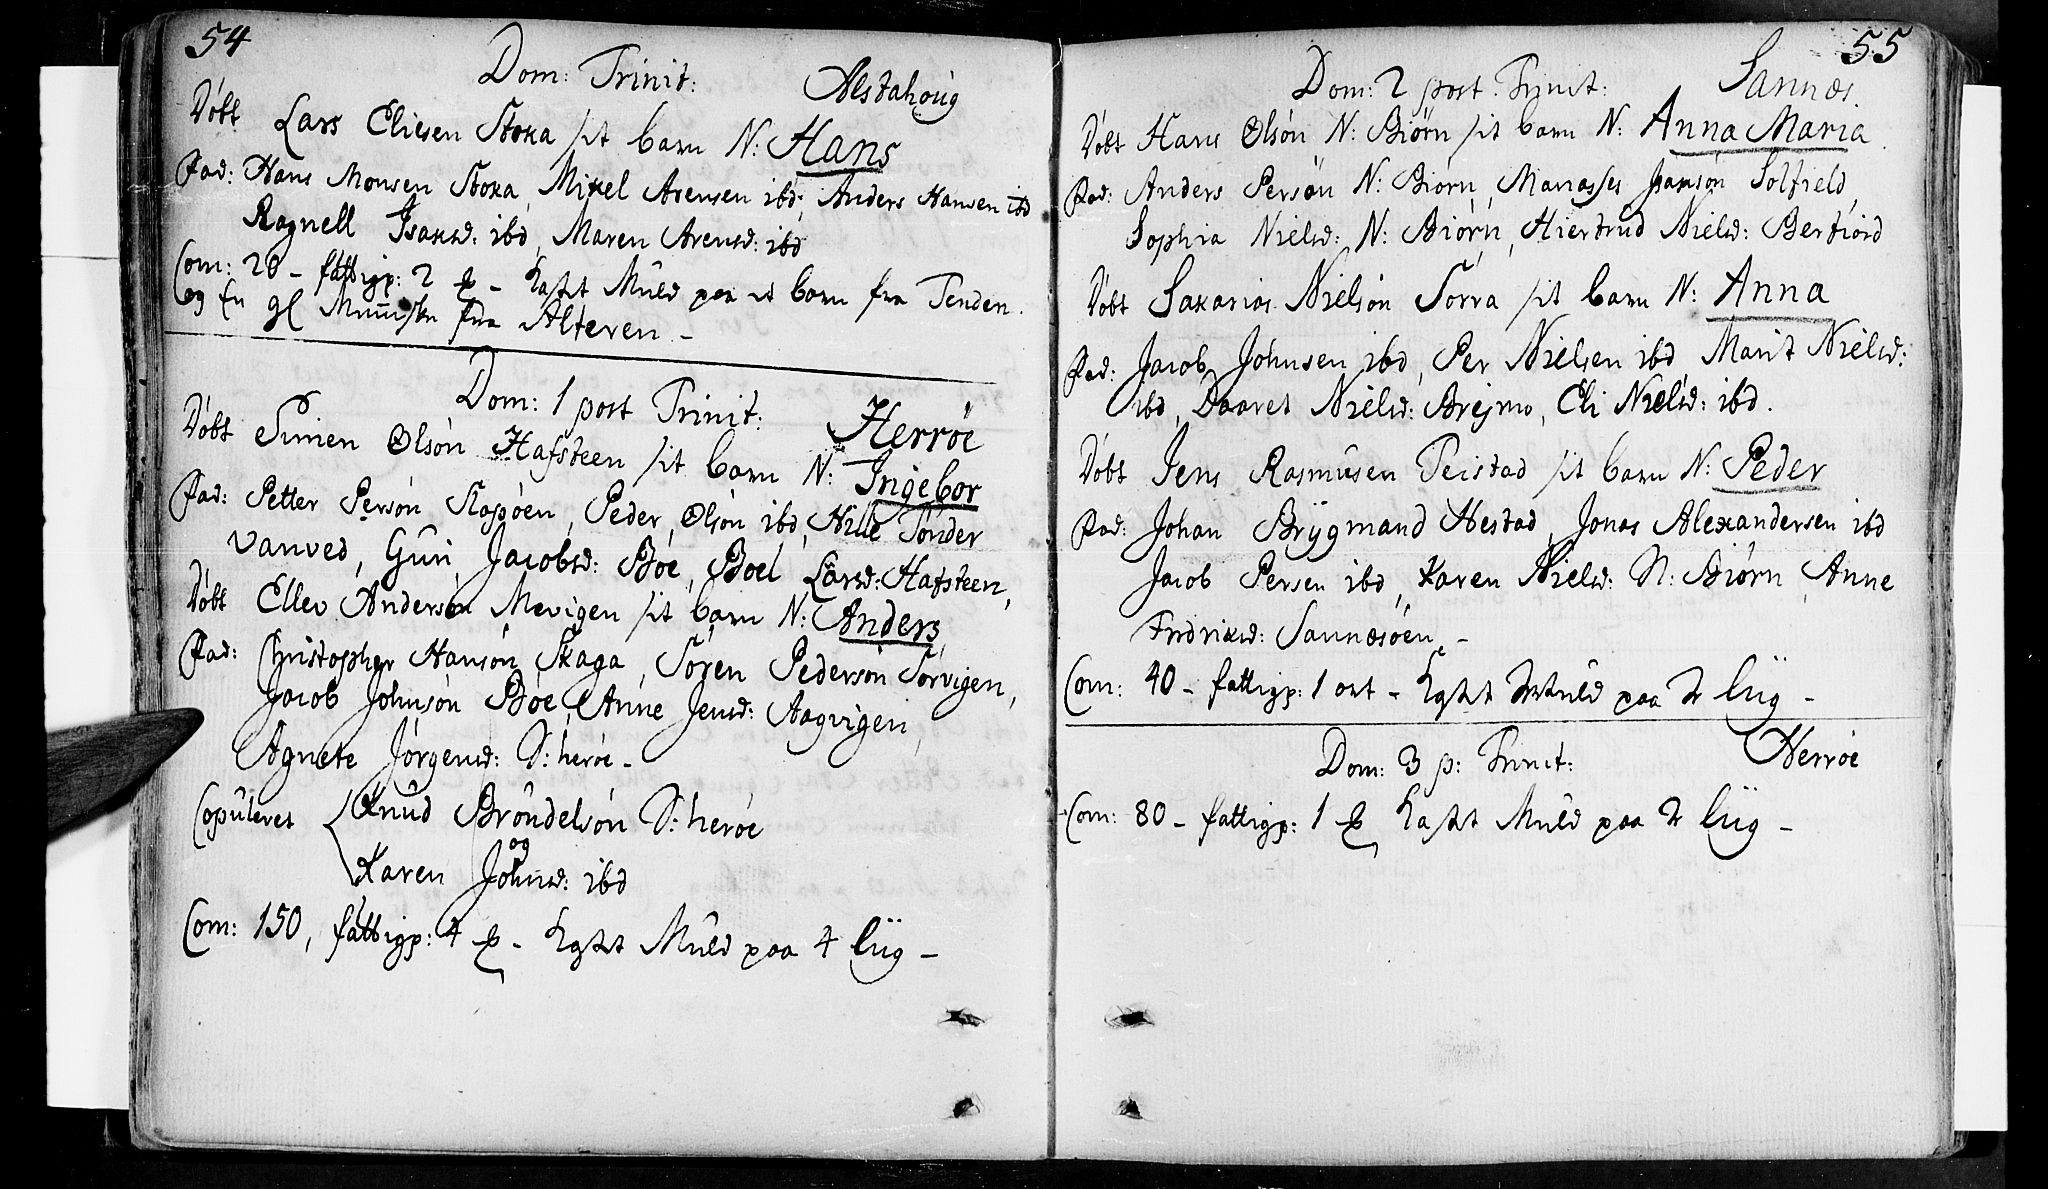 54
Dom: Trinit: Alstahoug
Döbt Lars Eliesen Stoxa sit barn N: Hans
Fad: Hans Monsen Stoxa, Mikel Arensen ibd, Anders Hansen ibd
Ragnell Isaksd: ibd, Maren Arensd: ibd
Com: 20 - fattigp: 2 - Kastet Muld paa et barn fra Tenden.
og En gl Menniske fra Alteren -
Dom: 1 post Trinit: Herröe
Döbt Simen Olsön Hafsteen sit barn N: Ingebor
Fad: Petter Persön Slapöen, Peder Olsön ibd, Nille Tönder
Vanved, Guri Jacobsd: Böe, Boel Larsd: Hafsteen,
Döbt Ellev Andersön Mevigen sit barn N: Anders
Fad: Christopher Hansön Skaga, Sören Pedersön Sörvigen,
Jacob Johnsön Böe, Anne Jensd: Aagvigen,
Agnete Jörgensd: S: heröe -
Copuleret Knud Bröndelsön S: heröe
og
Karen Johnsd: ibd
Com: 150, fattigp: 4 - Kastet Muld paa 4 liig -
55
Dom: 2 post Trinit: Sannæs.
Döbt Hans Olsön N: Biörn sit barn N: Anna Maria.
Fad: Anders Persön N: Biörn, Manasses Solfield,
Sophia Nielsd: N: Biörn, Hierdrud Nielsd: Berfiord
Döbt Sakarias Nielsön Sörra sit barn N: Anna
Fad: Jacob Johnsen ibd, Per Nielsen ibd, Marit Nielsd:
ibd, Daaret Nielsd: Brejmo, Eli Nielsd: ibd.
Döbt Jens Rasmusen Teistad sit barn N: Peder
Fad: Johan Brygmand Hestad, Jonas Alexandersen ibd
Jacob Persen ibd, Karen Nielsd: N: Biörn, Anne
Fredriksd: Sannæsöen -
Com: 40 - fattigp: 1 ort - Kastet Muld paa 2 liig -
Dom: 3 p: Trinit: Herröe
Com: 80 - fattigp: 1 Kastet Muld paa 2 liig -